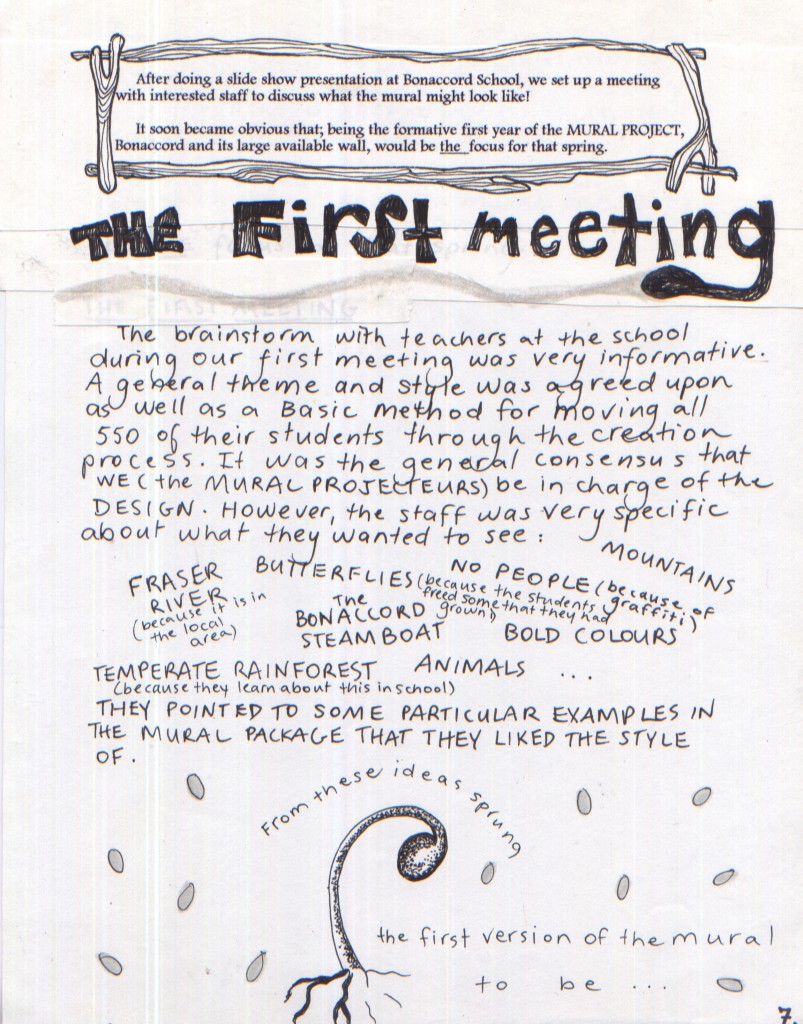 After doing a slide show presentation at Bonaccord School, we set up a meeting
with interested staff to discuss what the mural might look like!
It soon became obvious that; being the formative first year of the MURAL PROJECT,
Bonaccord and its large available wall, would be the focus for that spring.
THE First meeting
THE FIRST MEETING
The brainstorm with teachers at the school
during our first meeting was very informative.
A general theme and style was agreed upon
as well as a Basic method for moving all
550 of their students through the creation
process. It was the general consensus that
WE (the MURAL PROJECTEURS) be in charge of the
DESIGN. However, the staff was very specific
about what they wanted to see:
MOUNTAINS
FRASER
RIVER
(because it is in
the local
area)
BUTTERFLIES (because the students
freed some that they had
grown)
NO PEOPLE (because of
graffiti)
THE
BONACCORD
STEAMBOAT
BOLD COLOURS
TEMPERATE RAINFOREST
(because they learn about this in school)
ANIMALS ...
THEY POINTED TO SOME PARTICULAR EXAMPLES IN
THE MURAL PACKAGE THAT THEY LIKED THE STYLE
OF.
From these ideas sprung
the first version of the mural
to be ...
7.